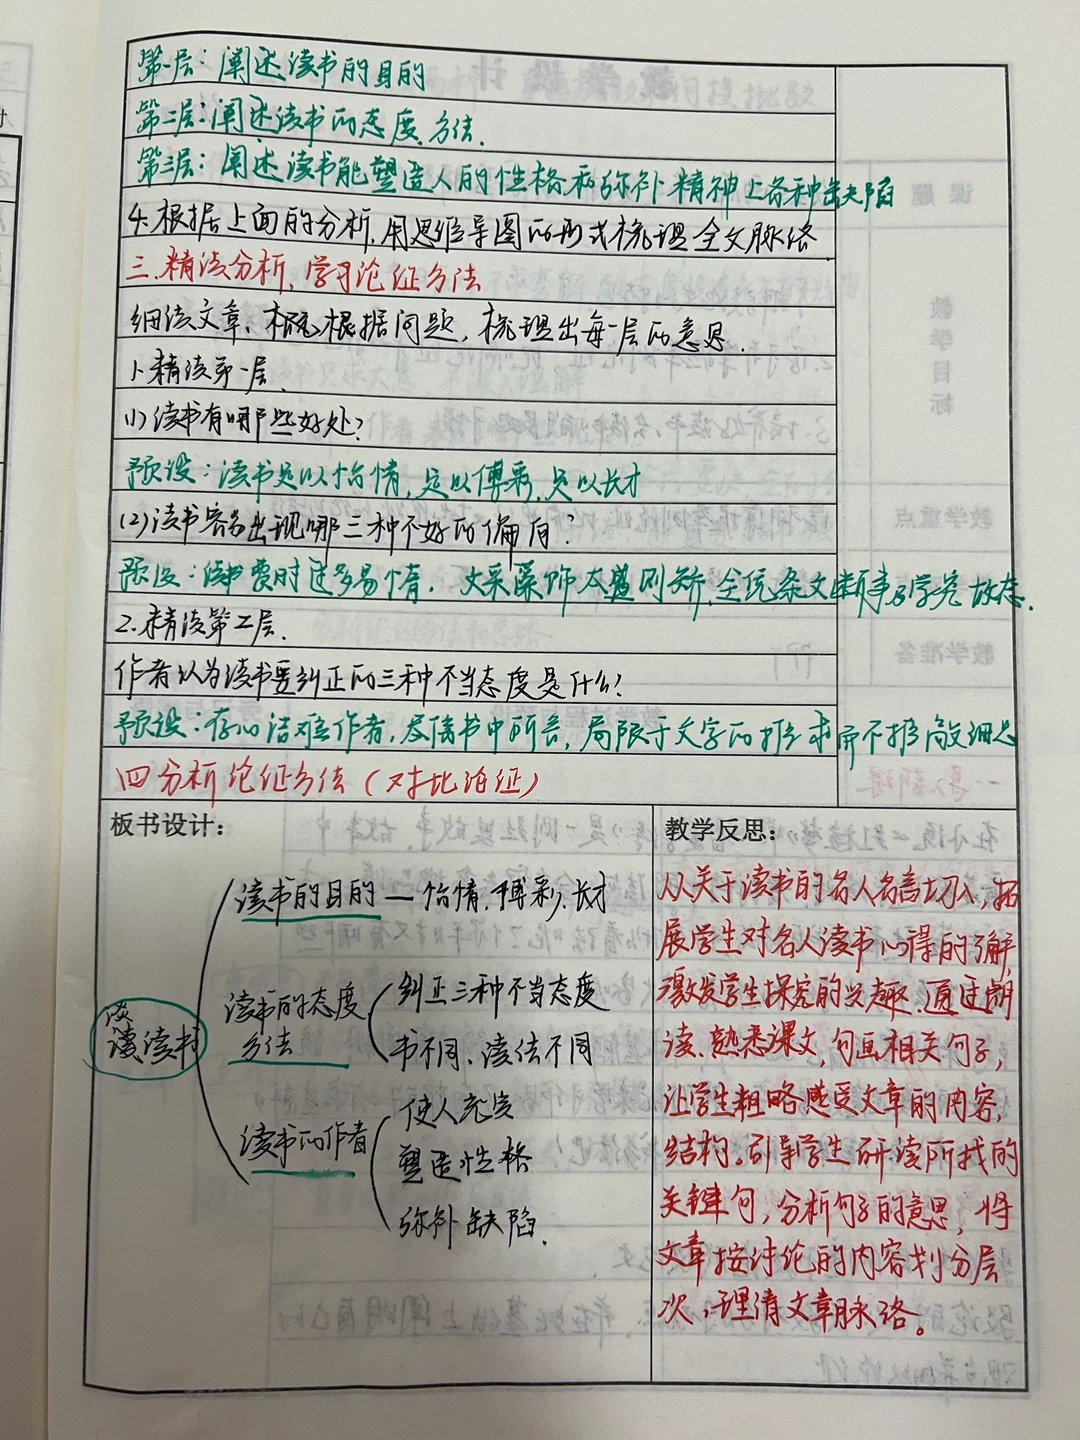 第一层：阐述读书的目的
第二层：阐述读书的态度、方法.
第三层：阐述读书能塑造人的性格和弥补精神上各种缺陷
4.根据上面的分析,用思维导图的形式梳理全文脉络
三.精读分析、学习论证方法
细读文章、根据问题,梳理出每一层的意思.
1.精读第一层.
(1)读书有哪些好处?
预设：读书足以怡情,足以傅彩,足以长才
(2)读书容易出现哪三种不好的偏向?
预设：读书费时过多易惰. 文采藻饰太盛则矫,全凭条文断事乃学究故态.
2.精读第二层.
作者认为读书要纠正的三种不当态度是什么?
预设：存心诘难作者,尽信书中所言,局限于文字的推求而不推敲细思
四分析论证方法(对比论证)
板书设计：
谈
读书
读书的目的一怡情.傅彩.长才
读书的态度
方法
纠正三种不当态度
书不同、读法不同
读书的作者
使人充实
塑造性格
弥补缺陷.
教学反思：
从关于读书的名人名言切入,拓
展学生对名人读书心得的了解,
激发学生探究的兴趣.通过朗
读、熟悉课文,勾画相关句子,
让学生粗略感受文章的内容,
结构。引导学生研读所找的
关键句,分析句子的意思,将
文章按讨论的内容划分层
次,理清文章脉络。
课题
教学目标
教学重点
教学准备